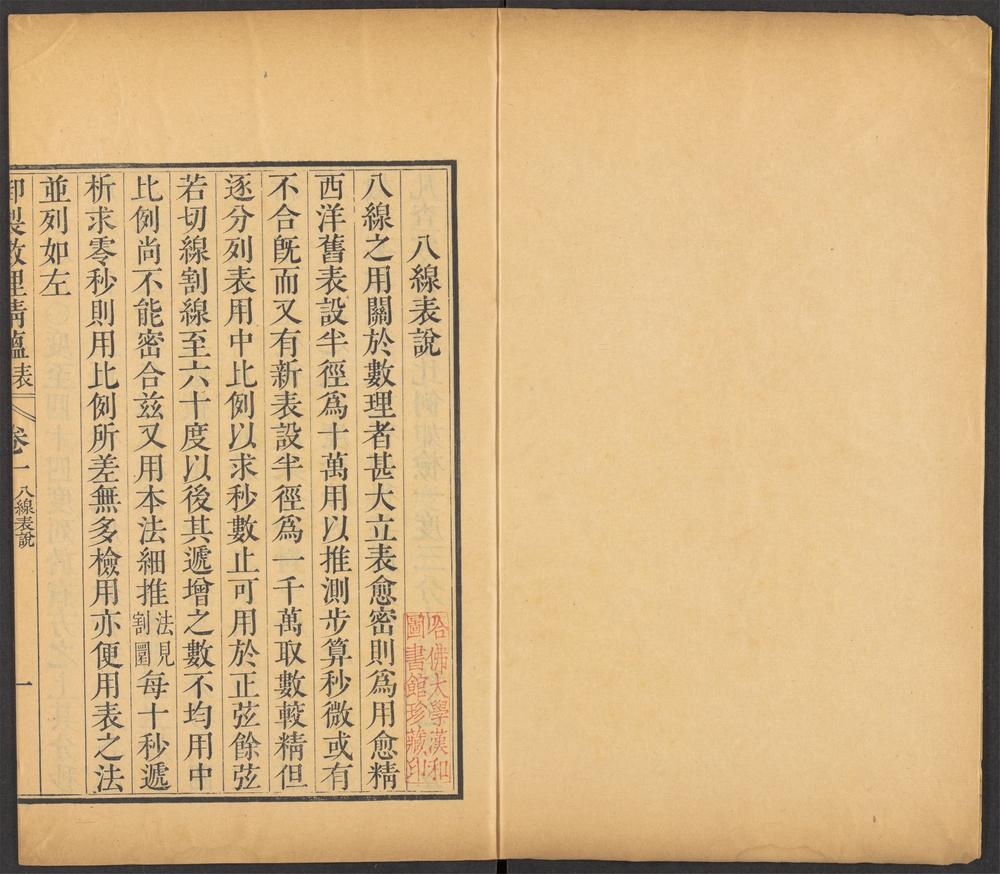 八線表說
八線之用關於數理者甚大立表愈密則爲用愈精
西洋舊表設半徑爲十萬用以推測步算秒微或有
不合旣而又有新表設半徑爲一千萬取數較精但
逐分列表用中比例以求秒數止可用於正弦餘弦
若切線割線至六十度以後其遞增之數不均用中
比例尚不能密合兹又用本法細推法見割圜每十秒遞
析求零秒則用比例所差無多檢用亦便用表之法
並列如左
御製數理精蘊表 卷一 八線表說 一
哈佛大學漢和
圖書館珍藏印